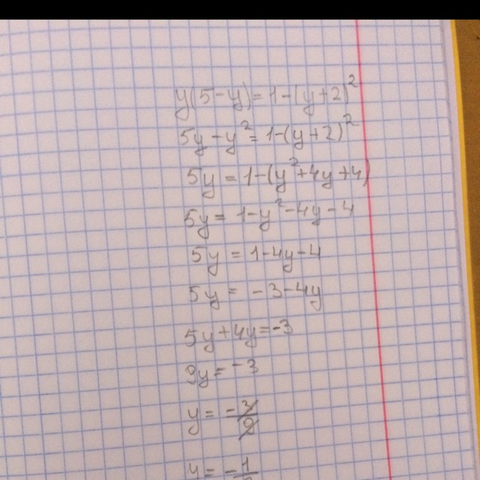 y(5-y)=1-(y+2)²
5y-y²=1-(y+2)²
5y=1-(y²+4y+4)
5y=1-y²-4y-4
5y=1-4y-4
5y=-3-4y
5y+4y=-3
9y=-3
y=-3/9
y=-1